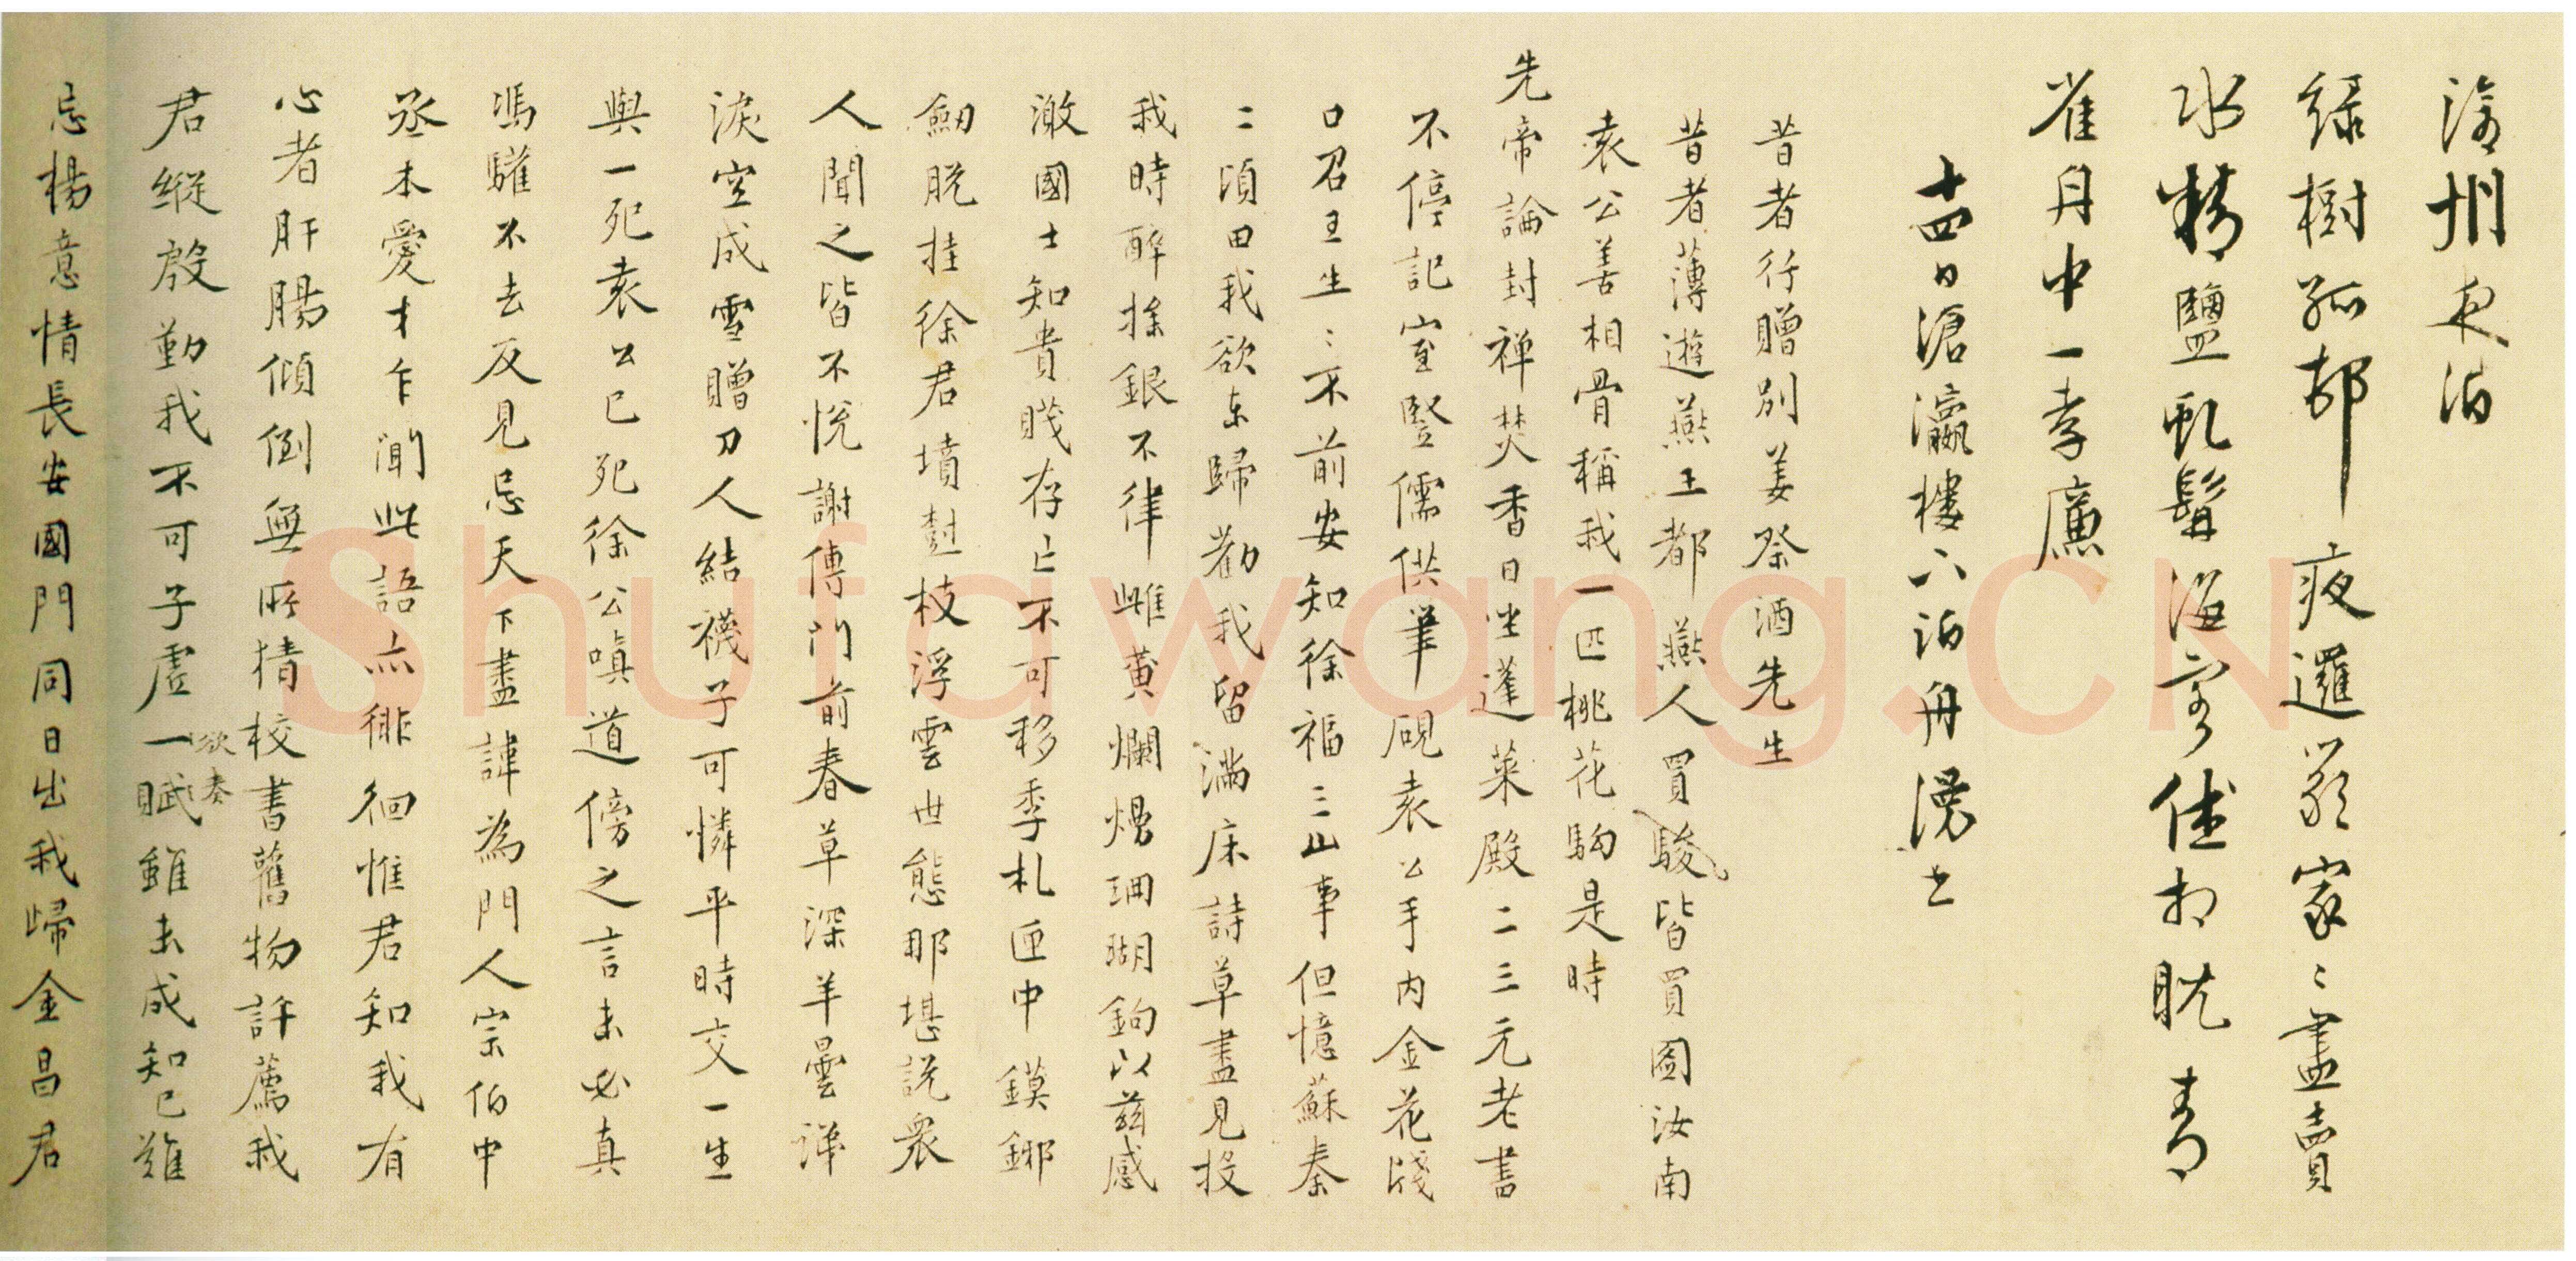 滄州夜泊
綠樹孤邨夜邏嚴家〻盡賣
水精鹽虬髯海客休相眈青
雀月中一孝廉
十四日滄瀛樓下泊舟漫士
昔者行贈別姜祭酒先生
昔者薄遊燕王都燕人買駿皆買圖汝南
袁公善相骨稱我一匹桃花駒是時
先帝論封禅焚香日坐蓬萊殿二三元老書
不停記室豎儒供筆硯袁公手内金花牋
口召王生〻不前安知徐福三山事但憶蘇秦
二頃田我欲東歸勸我留滿床詩草盡見投
我時醉捺銀不律雌黄爛熳珊瑚鉤以兹感
激國士知貴賤存亡不可移季札匣中鏌鋣
劒脱挂徐君墳樹枝浮雲世態那堪説衆
人聞之皆不悅謝傅門前春草深羊曇涕
淚空成雪贈刀人結襪子可憐平時交一生
與一死袁公已死徐公嗔道傍之言未必真
馮驩不去反見忌天下盡諱為門人宗伯中
丞本愛才乍聞此語亦徘徊惟君知我有
心者肝腸傾倒無所猜校書舊物許薦我
君縱殷勤我不可子虛一賦雖未成知己難
欲奏
忌楊意情長安國門同日出我歸金昌君
Shufawang.CN